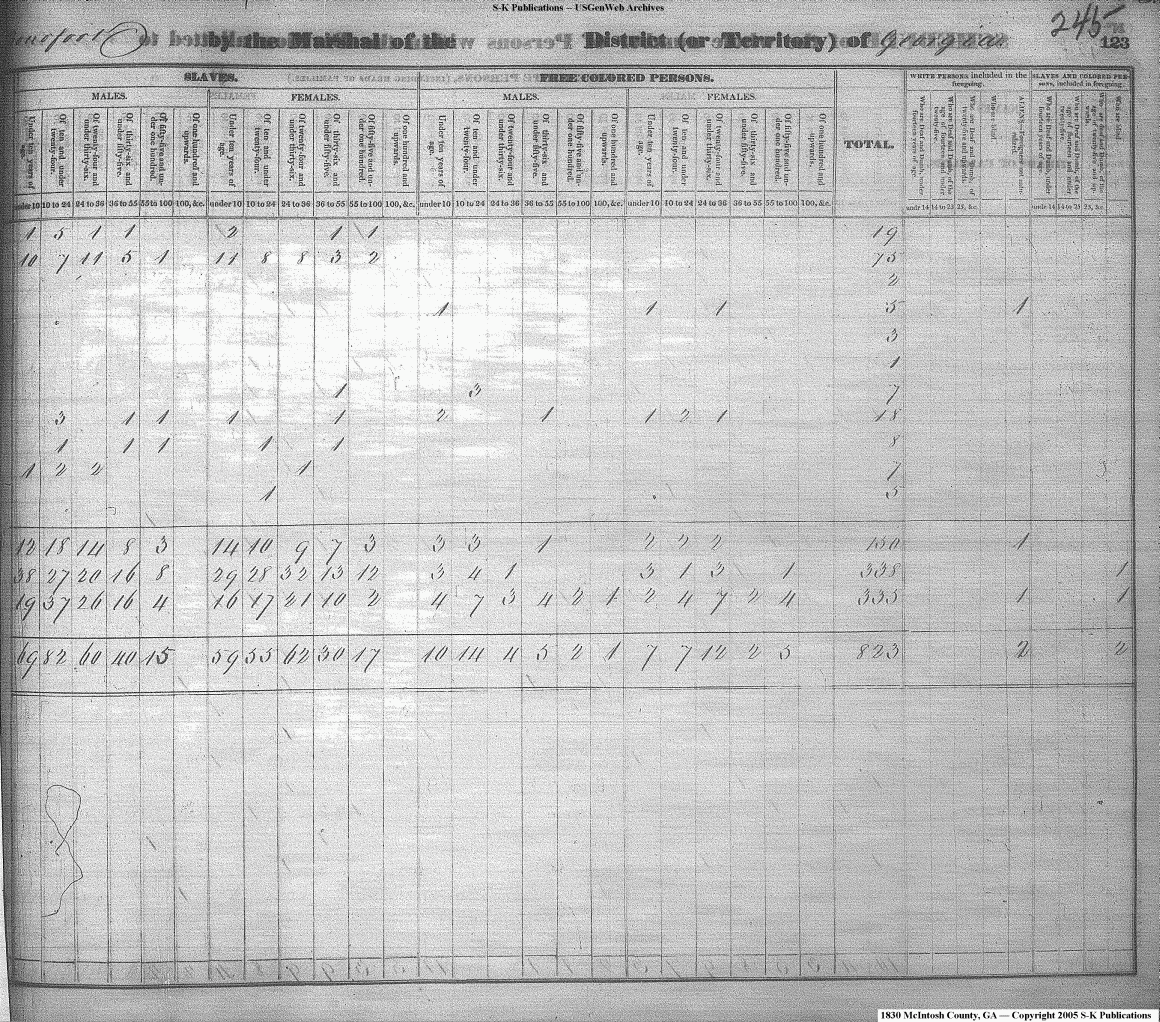 S-K Publications -- USGenWeb Archives
245
by the Marshal of the District (or Territory) of Georgia
123
SLAVES. FREE COLORED PERSONS. TOTAL. WHITE PERSONS included in the foregoing. SLAVES AND COLORED PERSONS, included in foregoing.
MALES. FEMALES. MALES. FEMALES.
Under ten years of age. Of ten and under twenty-four. Of twenty-four and under thirty-six. Of thirty-six and under fifty-five. Of fifty-five and under one hundred. Of one hundred and upwards. Under ten years of age. Of ten and under twenty-four. Of twenty-four and under thirty-six. Of thirty-six and under fifty-five. Of fifty-five and under one hundred. Of one hundred and upwards. Under ten years of age. Of ten and under twenty-four. Of twenty-four and under thirty-six. Of thirty-six and under fifty-five. Of fifty-five and under one hundred. Of one hundred and upwards. Under ten years of age. Of ten and under twenty-four. Of twenty-four and under thirty-six. Of thirty-six and under fifty-five. Of fifty-five and under one hundred. Of one hundred and upwards.
under 10 10 to 24 24 to 36 36 to 55 55 to 100 100, &c. under 10 10 to 24 24 to 36 36 to 55 55 to 100 100, &c. under 10 10 to 24 24 to 36 36 to 55 55 to 100 100, &c. under 10 10 to 24 24 to 36 36 to 55 55 to 100 100, &c. undr 14 14 to 25 25, &c. undr 14 14 to 25 25, &c.
1 5 1 1 2 1 1 19
10 7 11 5 1 11 8 8 3 2 75
2
1 1 1 5 1
3
1
1 3 7
3 1 1 1 1 2 1 1 2 1 18
1 1 1 1 1 8
1 2 2 1 7
1 5
12 18 14 8 3 14 10 9 7 3 3 3 1 2 2 2 150 1
38 27 20 16 8 29 28 32 13 12 3 4 1 3 1 3 1 338 1
19 37 26 16 4 16 17 21 10 2 4 7 3 4 2 1 2 4 7 2 4 335 1 1
69 82 60 40 15 59 55 62 30 17 10 14 4 5 2 1 7 7 12 2 5 823 2 2
1830 McIntosh County, GA — Copyright 2005 S-K Publications